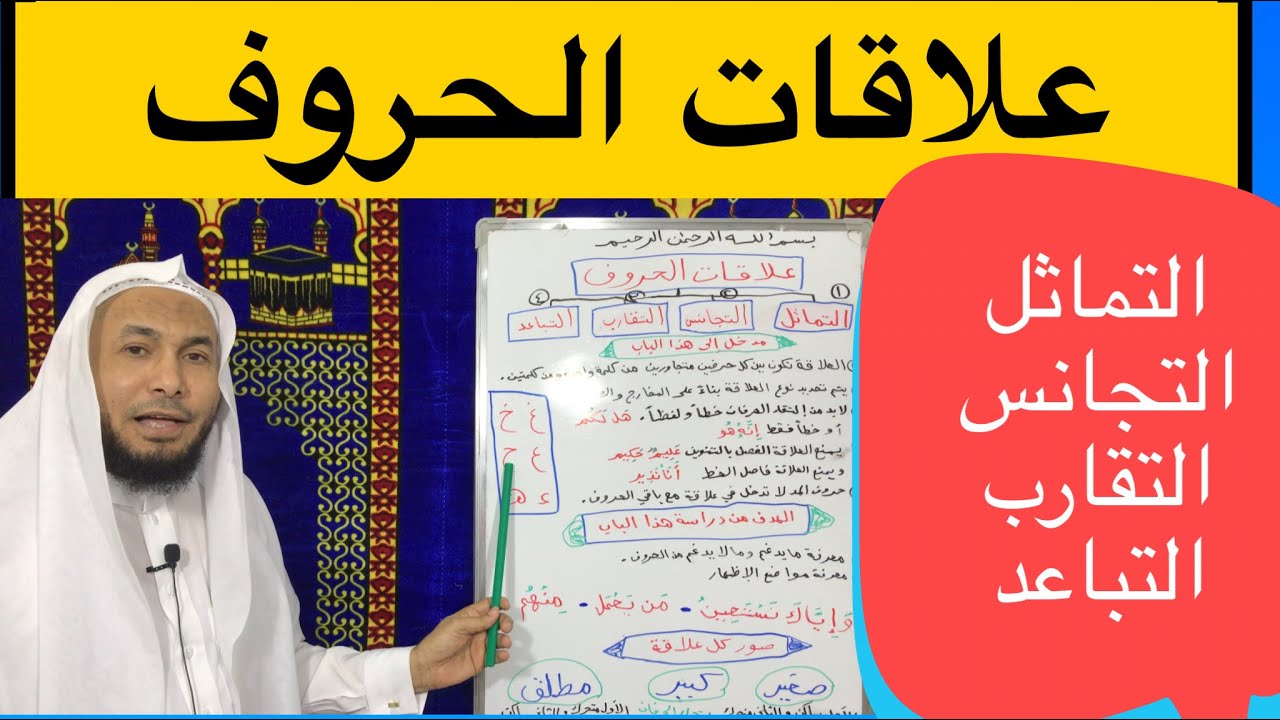 علاقات الحروف
التماثل
التجانس
التقارب
التباعد
بسم الله الرحمن الرحيم
علاقات الحروف
١ ٢ ٣ ٤
التماثل التجانس التقارب التباعد
مدخل إلى هذا الباب
العلاقة تكون بين كل حرفين متجاورين من كلمة أو من كلمتين .
يتم تحديد نوع العلاقة بناءً على المخارج
لابد من التقاء الحرفان خطاً و لفظاً . هَل لَّكُم
أو خطاً فقط إِنَّهُ هُو
يمنع العلاقة الفصل بالتنوين عَلِيمٌ حَكِيم
ويمنع العلاقة فاصل الخط أَنَا۠ نَذِير
حروف المد لا تدخل في علاقة مع باقي الحروف .
غ خ
ع ح
ء هـ
الهدف من دراسة هذا الباب
معرفة ما يدغم وما لا يدغم من الحروف .
معرفة مواضع الإظهار
وَإِيَّاكَ نَسْتَعِينُ - مَن يَعْمَل - مِنْهُم
صور كل علاقة
صغير كبير مطلق